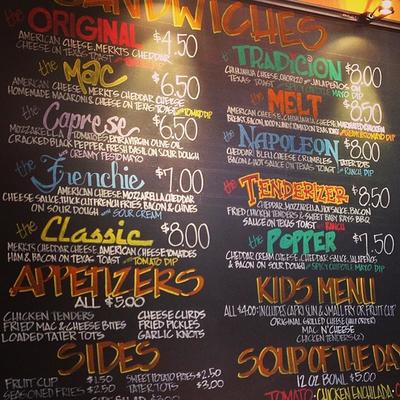 SANDWICHES
the ORIGINAL $4.50
AMERICAN CHEESE, MERKTS CHEDDAR
CHEESE ON TEXAS TOAST
the Mac $6.50
AMERICAN CHEESE, MERKTS CHEDDAR CHEESE
HOMEMADE MACARONI & CHEESE ON TEXAS TOAST with TOMATO DIP
the Caprese $6.50
MOZZARELLA, TOMATOES, EXTRA VIRGIN OLIVE OIL
CRACKED BLACK PEPPER, FRESH BASIL ON SOUR DOUGH
with CREAMY PESTO MAYO
the Frenchie $7.00
AMERICAN CHEESE, MOZZARELLA, CHEDDAR
CHEESE SAUCE, THICK CUT FRENCH FRIES, BACON & CHIVES
ON SOUR DOUGH with SOUR CREAM
the Classic $8.00
MERKTS CHEDDAR CHEESE, AMERICAN CHEESE, TOMATOES
HAM & BACON ON TEXAS TOAST with TOMATO DIP
APPETIZERS
ALL $5.00
CHICKEN TENDERS
FRIED MAC & CHEESE BITES
LOADED TATER TOTS
CHEESE CURDS
FRIED PICKLES
GARLIC KNOTS
SIDES
FRUIT CUP $1.50
SEASONED FRIES $2.50
SWEET POTATO FRIES $2.50
TATER TOTS $3.00
the TRADICION $8.00
CHIHUAHUA CHEESE, CHORIZO & JALAPENOS ON
TEXAS TOAST with SPICY CHIPOTLE MAYO DIP
the MELT $8.50
AMERICAN CHEESE, CHIHUAHUA CHEESE
the Napoleon $8.00
CHEDDAR, BLEU CHEESE CRUMBLES, TATER TOTS
BACON & HOT SAUCE ON TEXAS TOAST with RANCH DIP
the TENDERIZER $8.50
CHEDDAR, MOZZARELLA, HOT SAUCE, BACON
FRIED CHICKEN TENDERS & SWEET BABY RAYS BBQ
SAUCE ON TEXAS TOAST with RANCH
the POPPER $7.50
CHEDDAR, CREAM CHEESE, CHEDDAR SAUCE, JALAPENOS
& BACON ON SOUR DOUGH with SPICY CHIPOTLE MAYO DIP
KIDS MENU
ALL $4.00: INCLUDES CAPRI SUN & SMALL FRY OR FRUIT CUP
ORIGINAL GRILLED CHEESE
MAC N' CHEESE
CHICKEN TENDERS
SOUP OF THE DAY
12 OZ BOWL $5.00
TOMATO • CHICKEN ENCHILADA